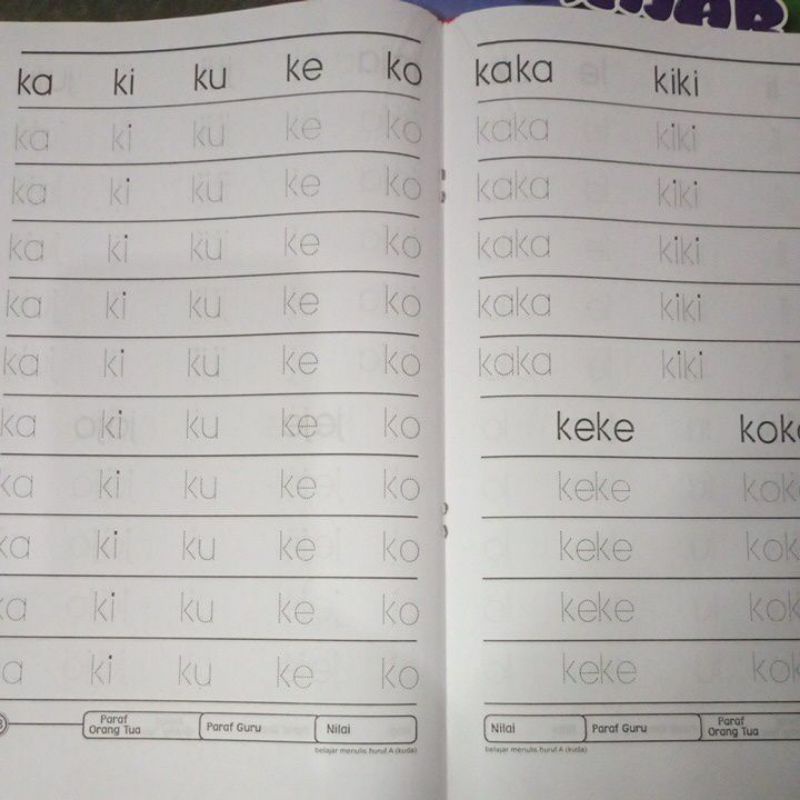 ka ki ku ke ko
ka ki ku ke ko
ka ki ku ke ko
ka ki ku ke ko
ka ki ku ke ko
ka ki ku ke ko
ka ki ku ke ko
ka ki ku ke ko
ka ki ku ke ko
ka ki ku ke ko
a ki ku ke ko
Paraf Orang Tua Paraf Guru Nilai
belajar menulis huruf A (kuda)
kaka kiki
kaka kiki
kaka kiki
kaka kiki
kaka kiki
kaka kiki
keke kok
keke kok
keke kok
keke kok
keke kok
Nilai Paraf Guru Paraf Orang Tua
belajar menulis huruf A (kuda)